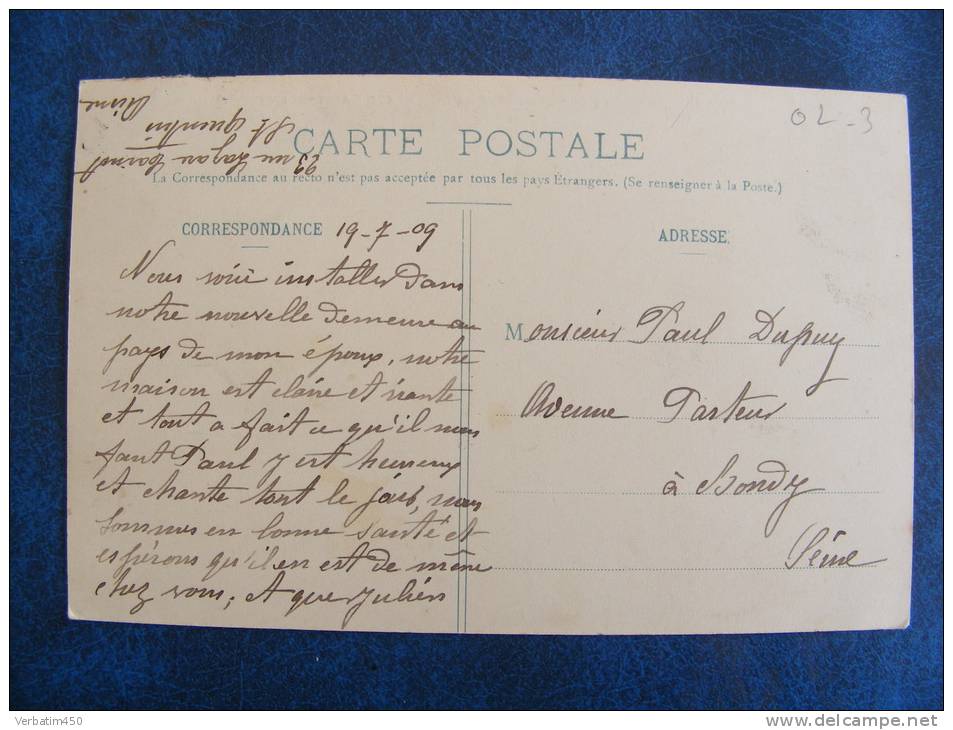 02-3
CARTE POSTALE
La Correspondance au recto n'est pas acceptée par tous les pays Étrangers. (Se renseigner à la Poste.)
CORRESPONDANCE 19-7-09
Nous voici installer dans
notre nouvelle demeure au
pays de mon époux, notre
maison est claire et riante
et tout a fait ce qu'il nous
faut Paul y est heureux
et chante tout le jour, nous
sommes en bonne santé et
espérons qu'il en est de même
chez vous; et que Julien
ADRESSE
Monsieur Paul Dupuy
Avenue Pasteur
à Bondy
Seine
23 rue
St Quentin
Aisne
Verbatim450
www.delcampe.net